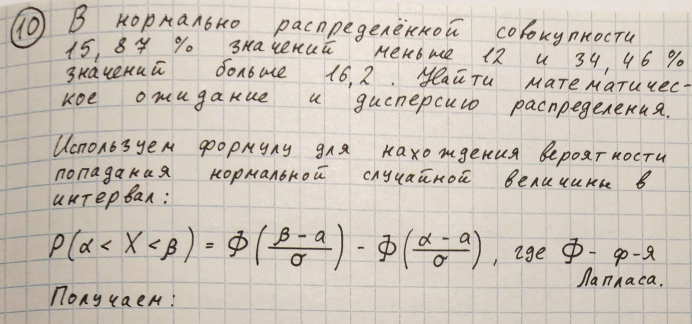 ⑩ В нормально распределённой совокупности
15,87 % значений меньше 12 и 34,46 %
значений больше 16,2. Найти математичес-
кое ожидание и дисперсию распределения.
Используем формулу для нахождения вероятности
попадания нормальной случайной величины в
интервал:
P(α < X < β) = Ф((β - a)/σ) - Ф((α - a)/σ), где Ф - ф-я
Лапласа.
Получаем: